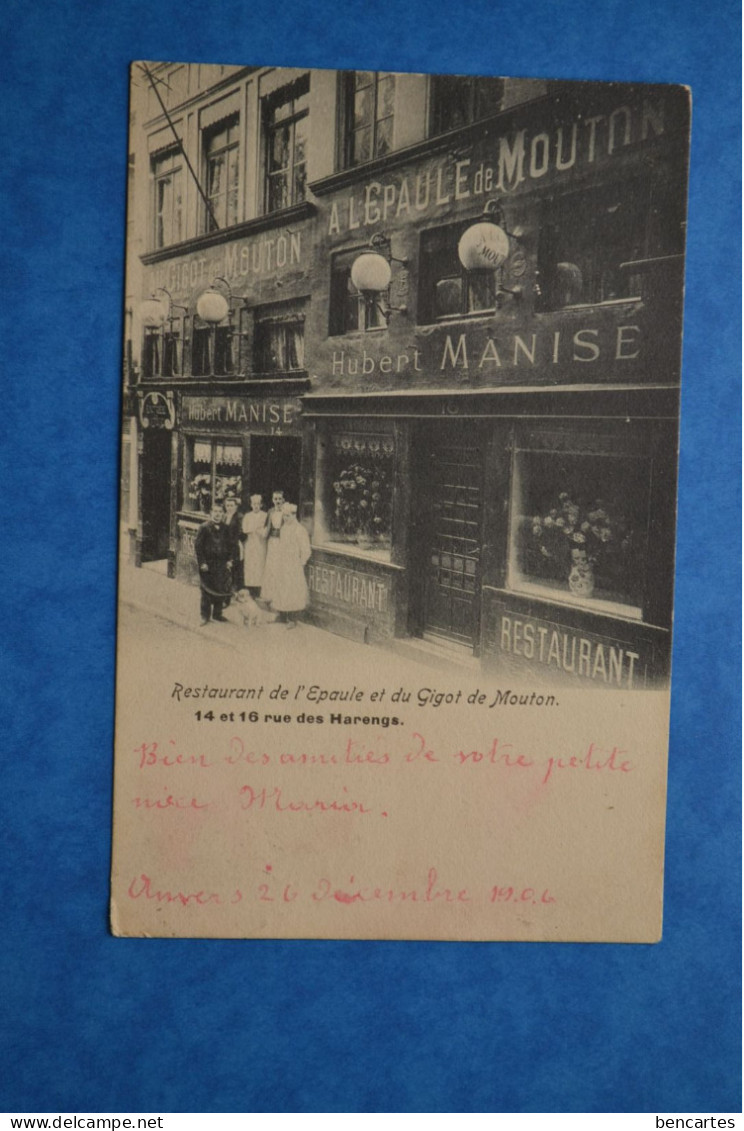 A L'EPAULE de MOUTON
GIGOT MOUTON
Hubert MANISE
Hubert MANISE
14
16
RESTAURANT
RESTAURANT
Restaurant de l'Epaule et du Gigot de Mouton.
14 et 16 rue des Harengs.
Bien des amitiés de votre petite
nièce Maria.
Anvers 26 décembre 1906
bencartes
delcampe.net